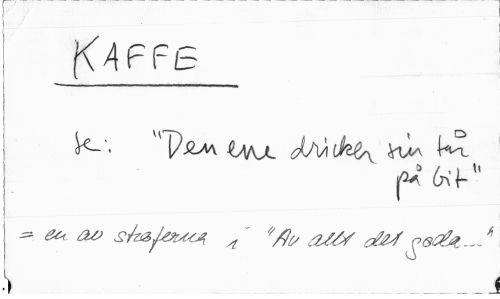 KAFFE
se: "Den ene dricker sin tår
på bit"
= en av stroferna i "Av allt det goda..."